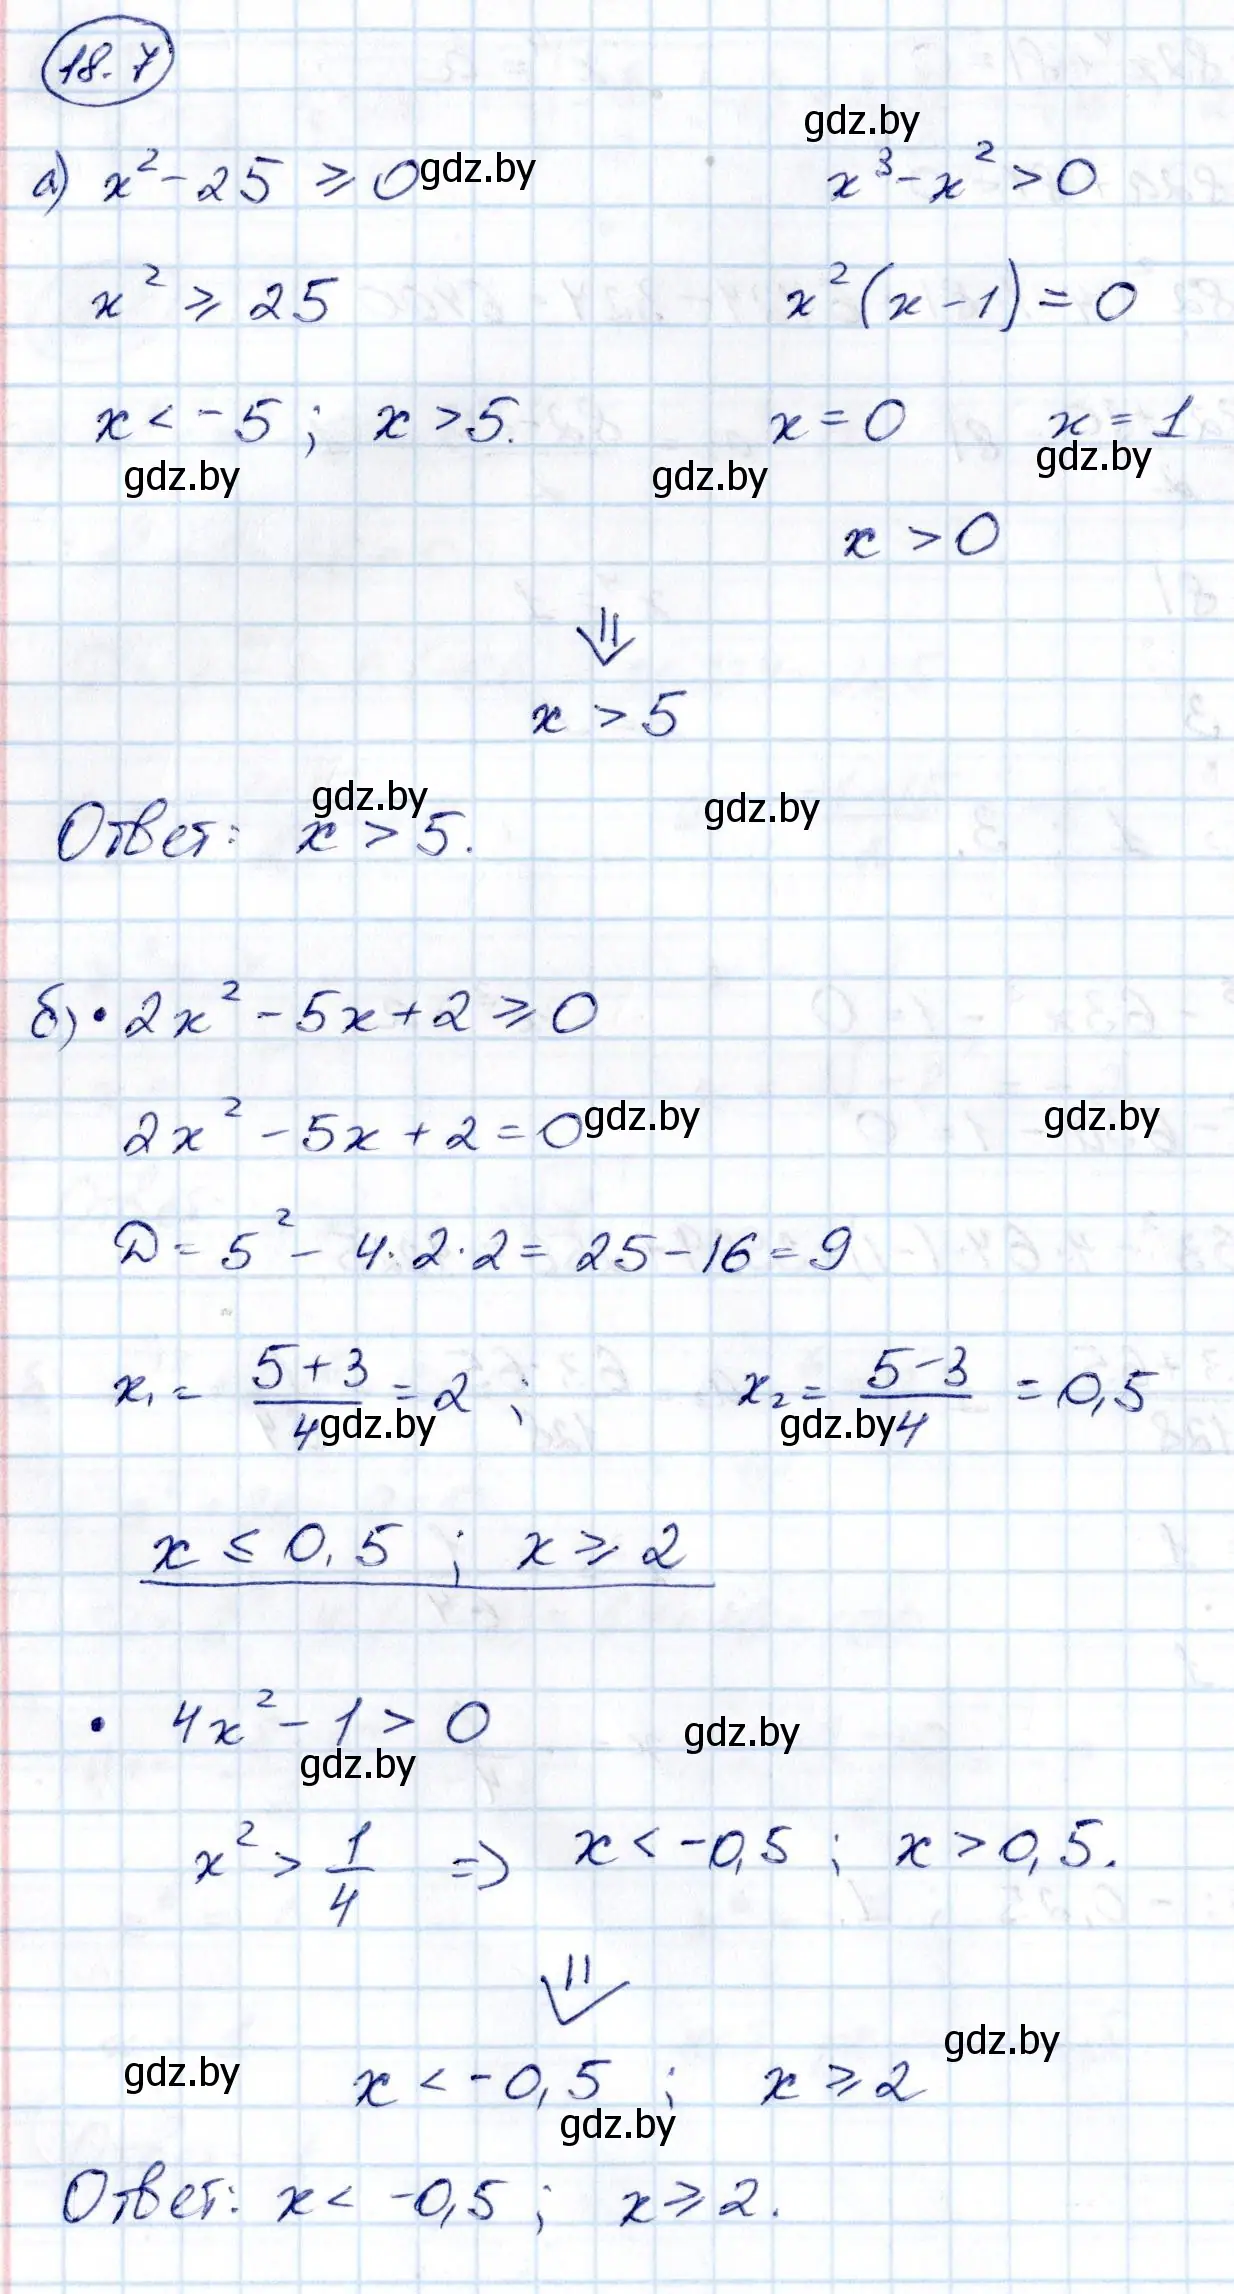 18.7
gdz.by
а) x² - 25 ⩾ 0 gdz.by x³ - x² > 0
x² ⩾ 25 x²(x - 1) = 0
x < -5 ; x > 5. x = 0 x = 1
gdz.by gdz.by gdz.by
x > 0
⇓
x > 5
gdz.by gdz.by
Ответ: x > 5.
б) • 2x² - 5x + 2 ⩾ 0
2x² - 5x + 2 = 0 gdz.by gdz.by
D = 5² - 4·2·2 = 25 - 16 = 9
x₁ = (5+3)/4 = 2 ; x₂ = (5-3)/4 = 0,5
gdz.by gdz.by
x ≤ 0,5 ; x ⩾ 2
• 4x² - 1 > 0 gdz.by
gdz.by
x² > 1/4 => x < -0,5 ; x > 0,5.
⇓
gdz.by gdz.by
x < -0,5 ; x ⩾ 2
gdz.by
Ответ: x < -0,5 ; x ⩾ 2.